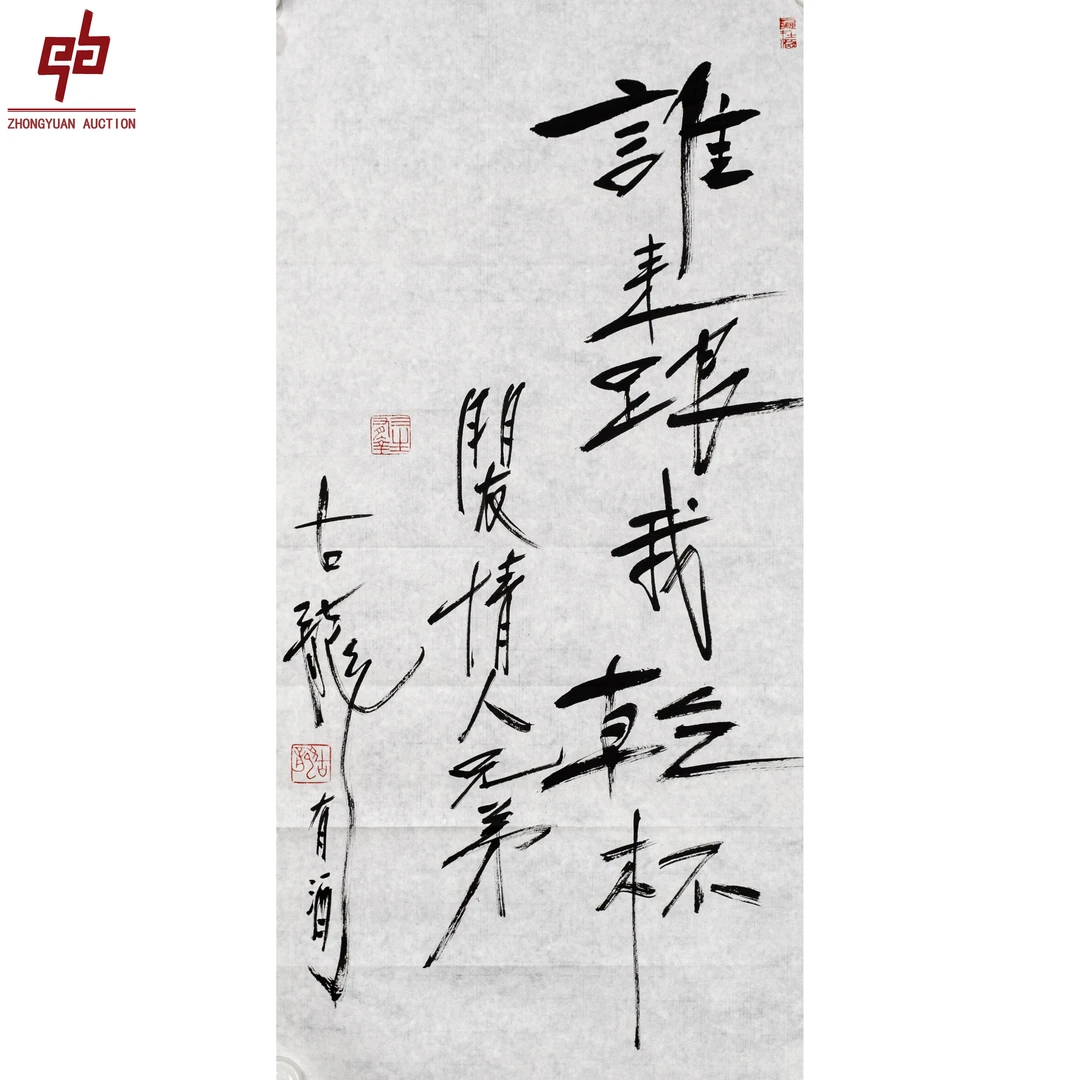 ZHONGYUAN AUCTION
誰来跟我乾杯
朋友情人兄弟
古龍
有酒